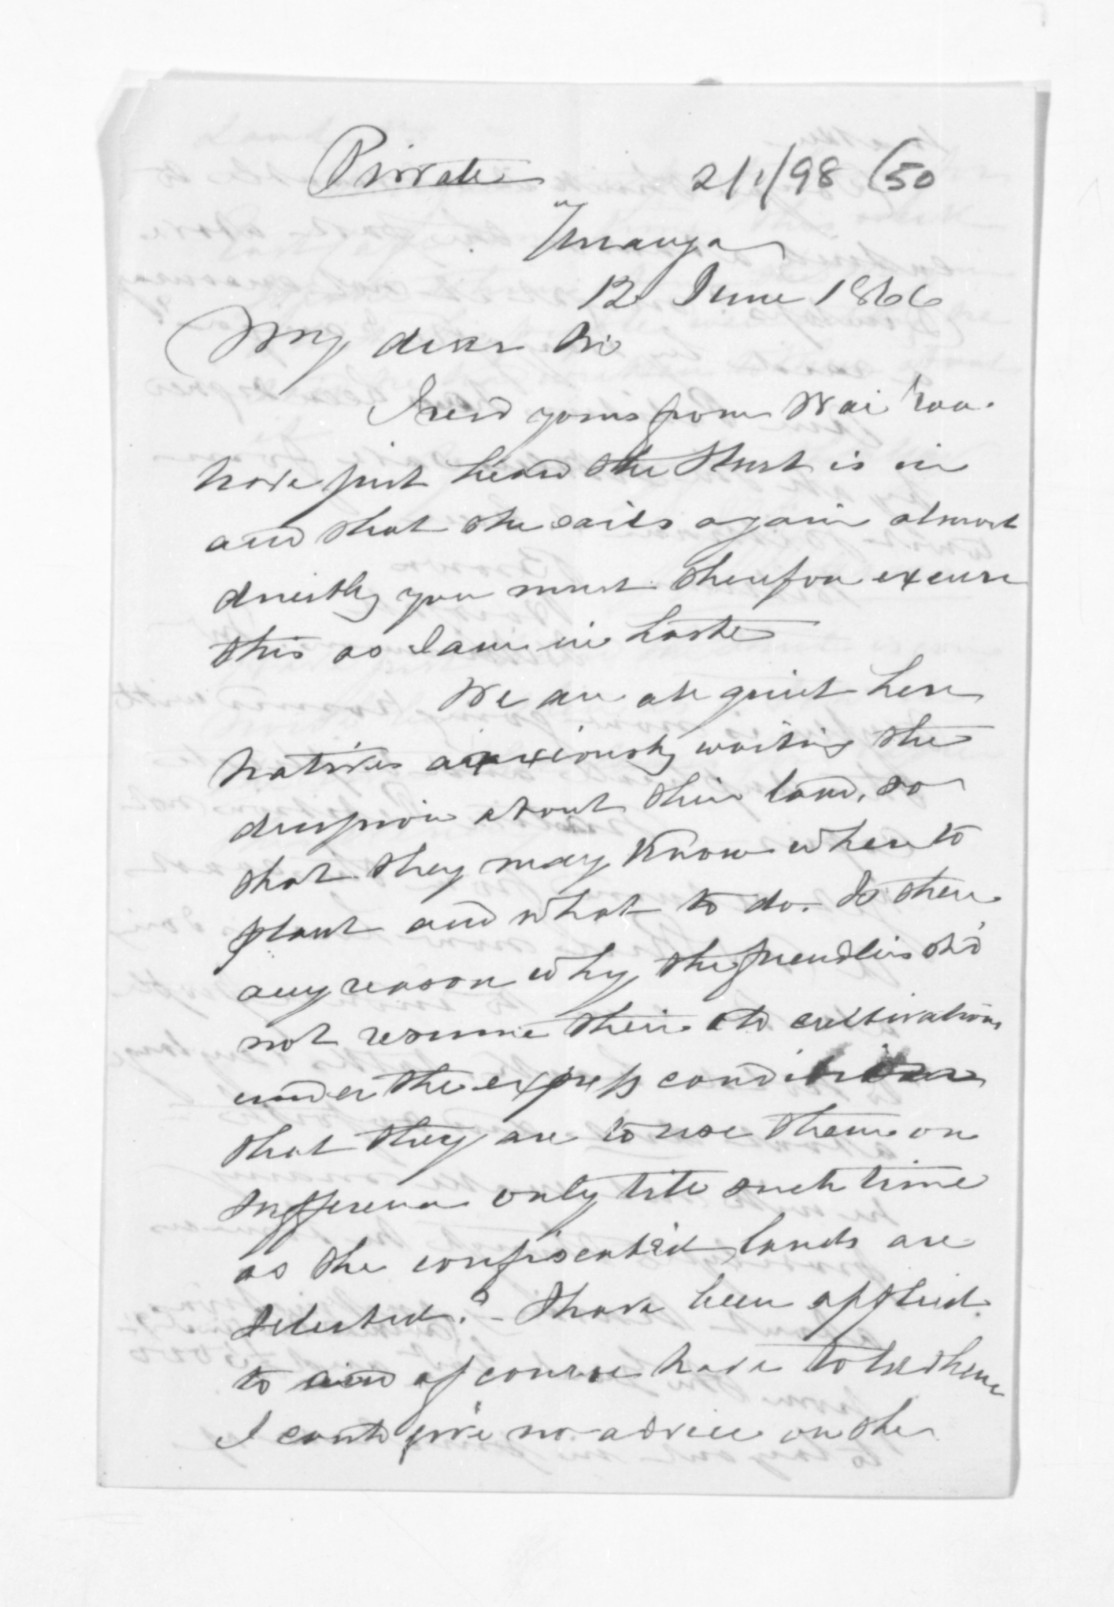 Private 2/1/98 (50
Turanga
12 June 1866
My dear Sir
I recd yours from Wairoa.
have just heard the Sturt is in
and that she sails again almost
directly you must therefore excuse
this as I am in haste
We are all quiet here
Natives anxiously waiting the
decision about their land, so
that they may know where to
plant and what to do. Is there
any reason why the friendlies shd
not resume their old cultivations
under the express condition
that they are to use them on
sufferance only till such time
as the confiscated lands are
selected? - I have been applied
to and of course have to tell them
I could give no advice on the